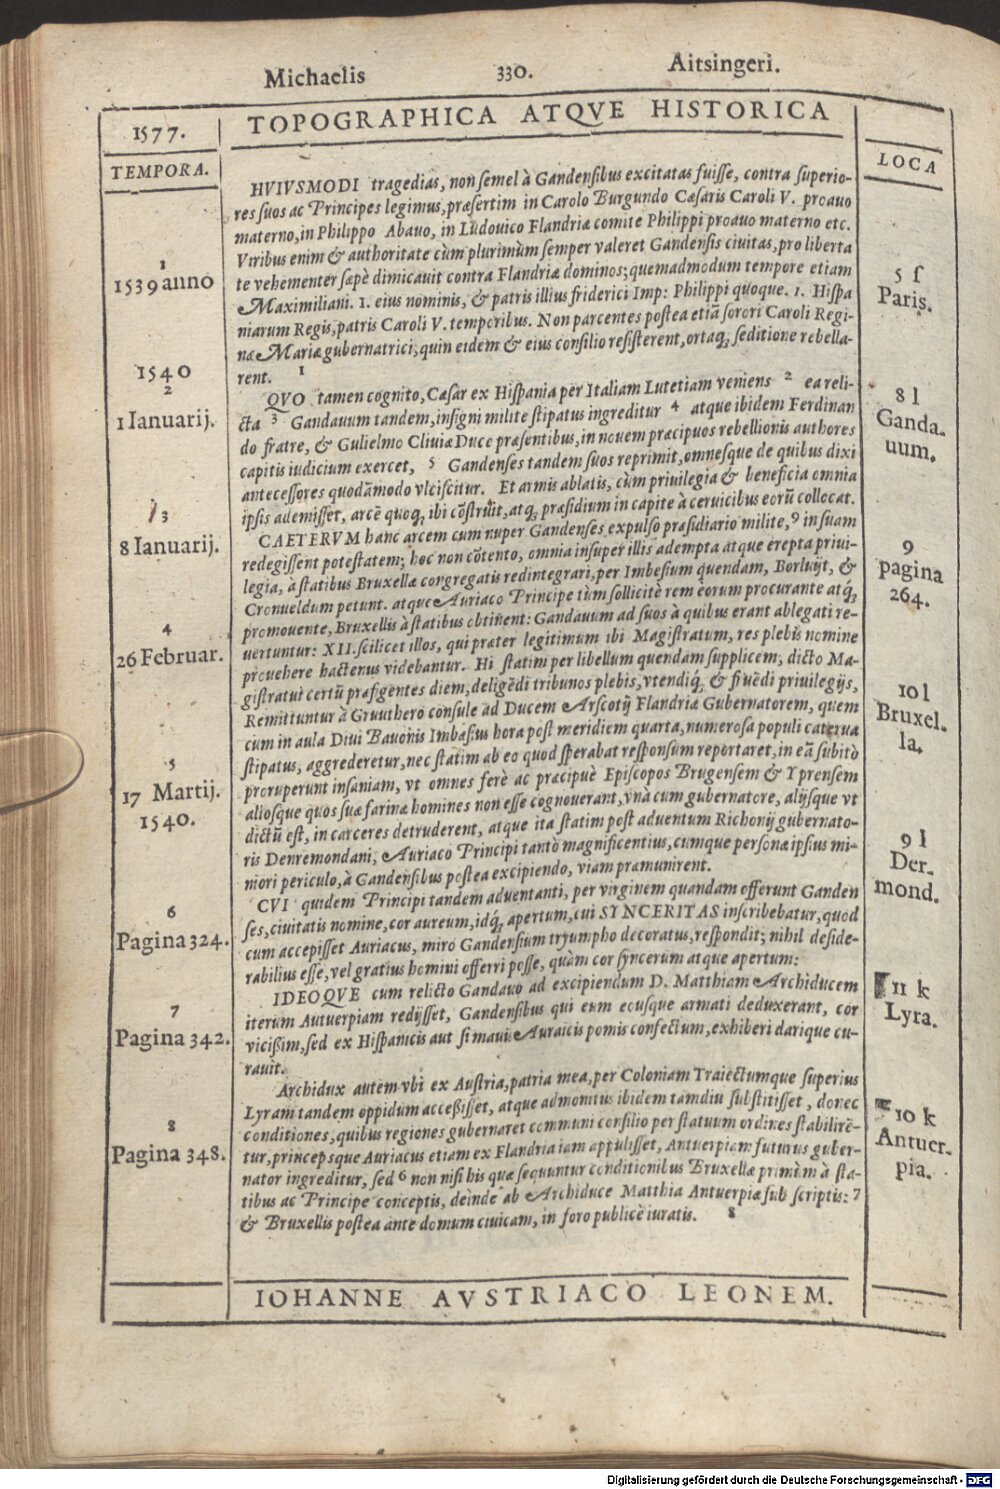 Michaelis 330. Aitsingeri.
1577. TOPOGRAPHICA ATQVE HISTORICA
TEMPORA.
LOCA
HVIVSMODI tragedias, non semel à Gandensibus excitatas fuisse, contra superio-
res suos ac Principes legimus, præsertim in Carolo Burgundo Cæsaris Caroli V. proauo
materno, in Philippo Abauo, in Ludouico Flandriæ comite Philippi proauo materno etc.
Viribus enim & authoritate cùm plurimùm semper valeret Gandensis ciuitas, pro liberta
te vehementer sæpè dimicauit contra Flandriæ dominos; quemadmodum tempore etiam
Maximiliani. 1. eius nominis, & patris illius friderici Imp: Philippi quoque. 1. Hispa
niarum Regis, patris Caroli V. temporibus. Non parcentes postea etiã sorori Caroli Regi-
næ Mariæ gubernatrici, quin eidem & eius consilio resisterent, ortaq; seditione rebella-
rent. 1
QVO tamen cognito, Cæsar ex Hispania per Italiam Lutetiam veniens 2 ea reli-
cta 3 Gandauum tandem, insigni milite stipatus ingreditur 4 atque ibidem Ferdinan
do fratre, & Gulielmo Cliuiæ Duce præsentibus, in nouem præcipuos rebellionis authores
capitis iudicium exercet, 5 Gandenses tandem suos reprimit, omnesque de quibus dixi
antecessores quodãmodo vlciscitur. Et armis ablatis, cùm priuilegia & beneficia omnia
ipsis ademisset, arcẽ quoq; ibi cõstruit, atq; præsidium in capite à ceruicibus eorũ collocat.
CAETERVM hanc arcem cum nuper Gandenses expulso præsidiario milite, 9 in suam
redegissent potestatem; hoc non cõtento, omnia insuper illis adempta atque erepta priui-
legia, à statibus Bruxellæ congregatis redintegrari, per Imbesium quendam, Borluijt, &
Cronueldum petunt. atque Auriaco Principe tùm sollicitè rem eorum procurante atq;
promouente, Bruxellis à statibus obtinent: Gandauum ad suos à quibus erant ablegati re-
uertuntur: XII. scilicet illos, qui præter legitimum ibi Magistratum, res plebis nomine
prouehere hactenus videbantur. Hi statim per libellum quendam supplicem, dicto Ma-
gistratui certũ præfigentes diem, deligẽdi tribunos plebis, vtendiq; & fruẽdi priuilegijs,
Remittuntur à Gruuthero consule ad Ducem Arscotij Flandriæ Gubernatorem, quem
cum in aula Diui Bauonis Imbæsius hora post meridiem quarta, numerosa populi caterua
stipatus, aggrederetur, nec statim ab eo quod sperabat responsum reportaret, in eã subitò
proruperunt insaniam, vt omnes ferè ac præcipuè Episcopos Brugensem & Yprensem
aliosque quos suæ farinæ homines non esse cognouerant, vnà cum gubernatore, alijsque vt
dictũ est, in carceres detruderent, atque ita statim post aduentum Richonij gubernato-
ris Denremondani, Auriaco Principi tantò magnificentius, cumque personæ ipsius mi-
niori periculo, à Gandensibus postea excipiendo, viam præmunirent.
CVI quidem Principi tandem aduentanti, per virginem quandam offerunt Ganden
ses, ciuitatis nomine, cor aureum, idq; apertum, cui SYNCERITAS inscribebatur, quod
cum accepisset Auriacus, miro Gandensium tryumpho decoratus, respondit; nihil deside-
rabilius esse, vel gratius homini offerri posse, quàm cor syncerum atque apertum:
IDEOQVE cum relicto Gandauo ad excipiendum D. Matthiam Archiducem
iterum Antuerpiam redijsset, Gandensibus qui eum eousque armati deduxerant, cor
vicißim, sed ex Hispanicis aut si mauis Auraicis pomis confectum, exhiberi darique cu-
rauit.
Archidux autem vbi ex Austria, patria mea, per Coloniam Traiectumque superius
Lyram tandem oppidum acceßisset, atque admonitus ibidem tamdiu substitisset, donec
conditiones, quibus regiones gubernaret communi consilio per statuum ordines stabilirẽ-
tur, princepsque Auriacus etiam ex Flandria iam appulisset, Antuerpiam futurus guber-
nator ingreditur, sed 6 non nisi his quæ sequuntur conditionibus Bruxellæ primùm à sta-
tibus ac Principe conceptis, deinde ab Archiduce Matthia Antuerpiæ sub scriptis: 7
& Bruxellis postea ante domum ciuicam, in foro publicè iuratis. 8
1
1539 anno
1540
2
1 Ianuarij.
3
8 Ianuarij.
4
26 Februar.
5
17 Martij.
1540.
6
Pagina 324.
7
Pagina 342.
8
Pagina 348.
5 f
Paris.
8 l
Ganda-
uum.
9
pagina
264.
10 l
Bruxel-
la.
9 l
Der-
mond.
11 k
Lyra.
10 k
Antuer-
pia.
IOHANNE AVSTRIACO LEONEM.
Digitalisierung gefördert durch die Deutsche Forschungsgemeinschaft - DFG